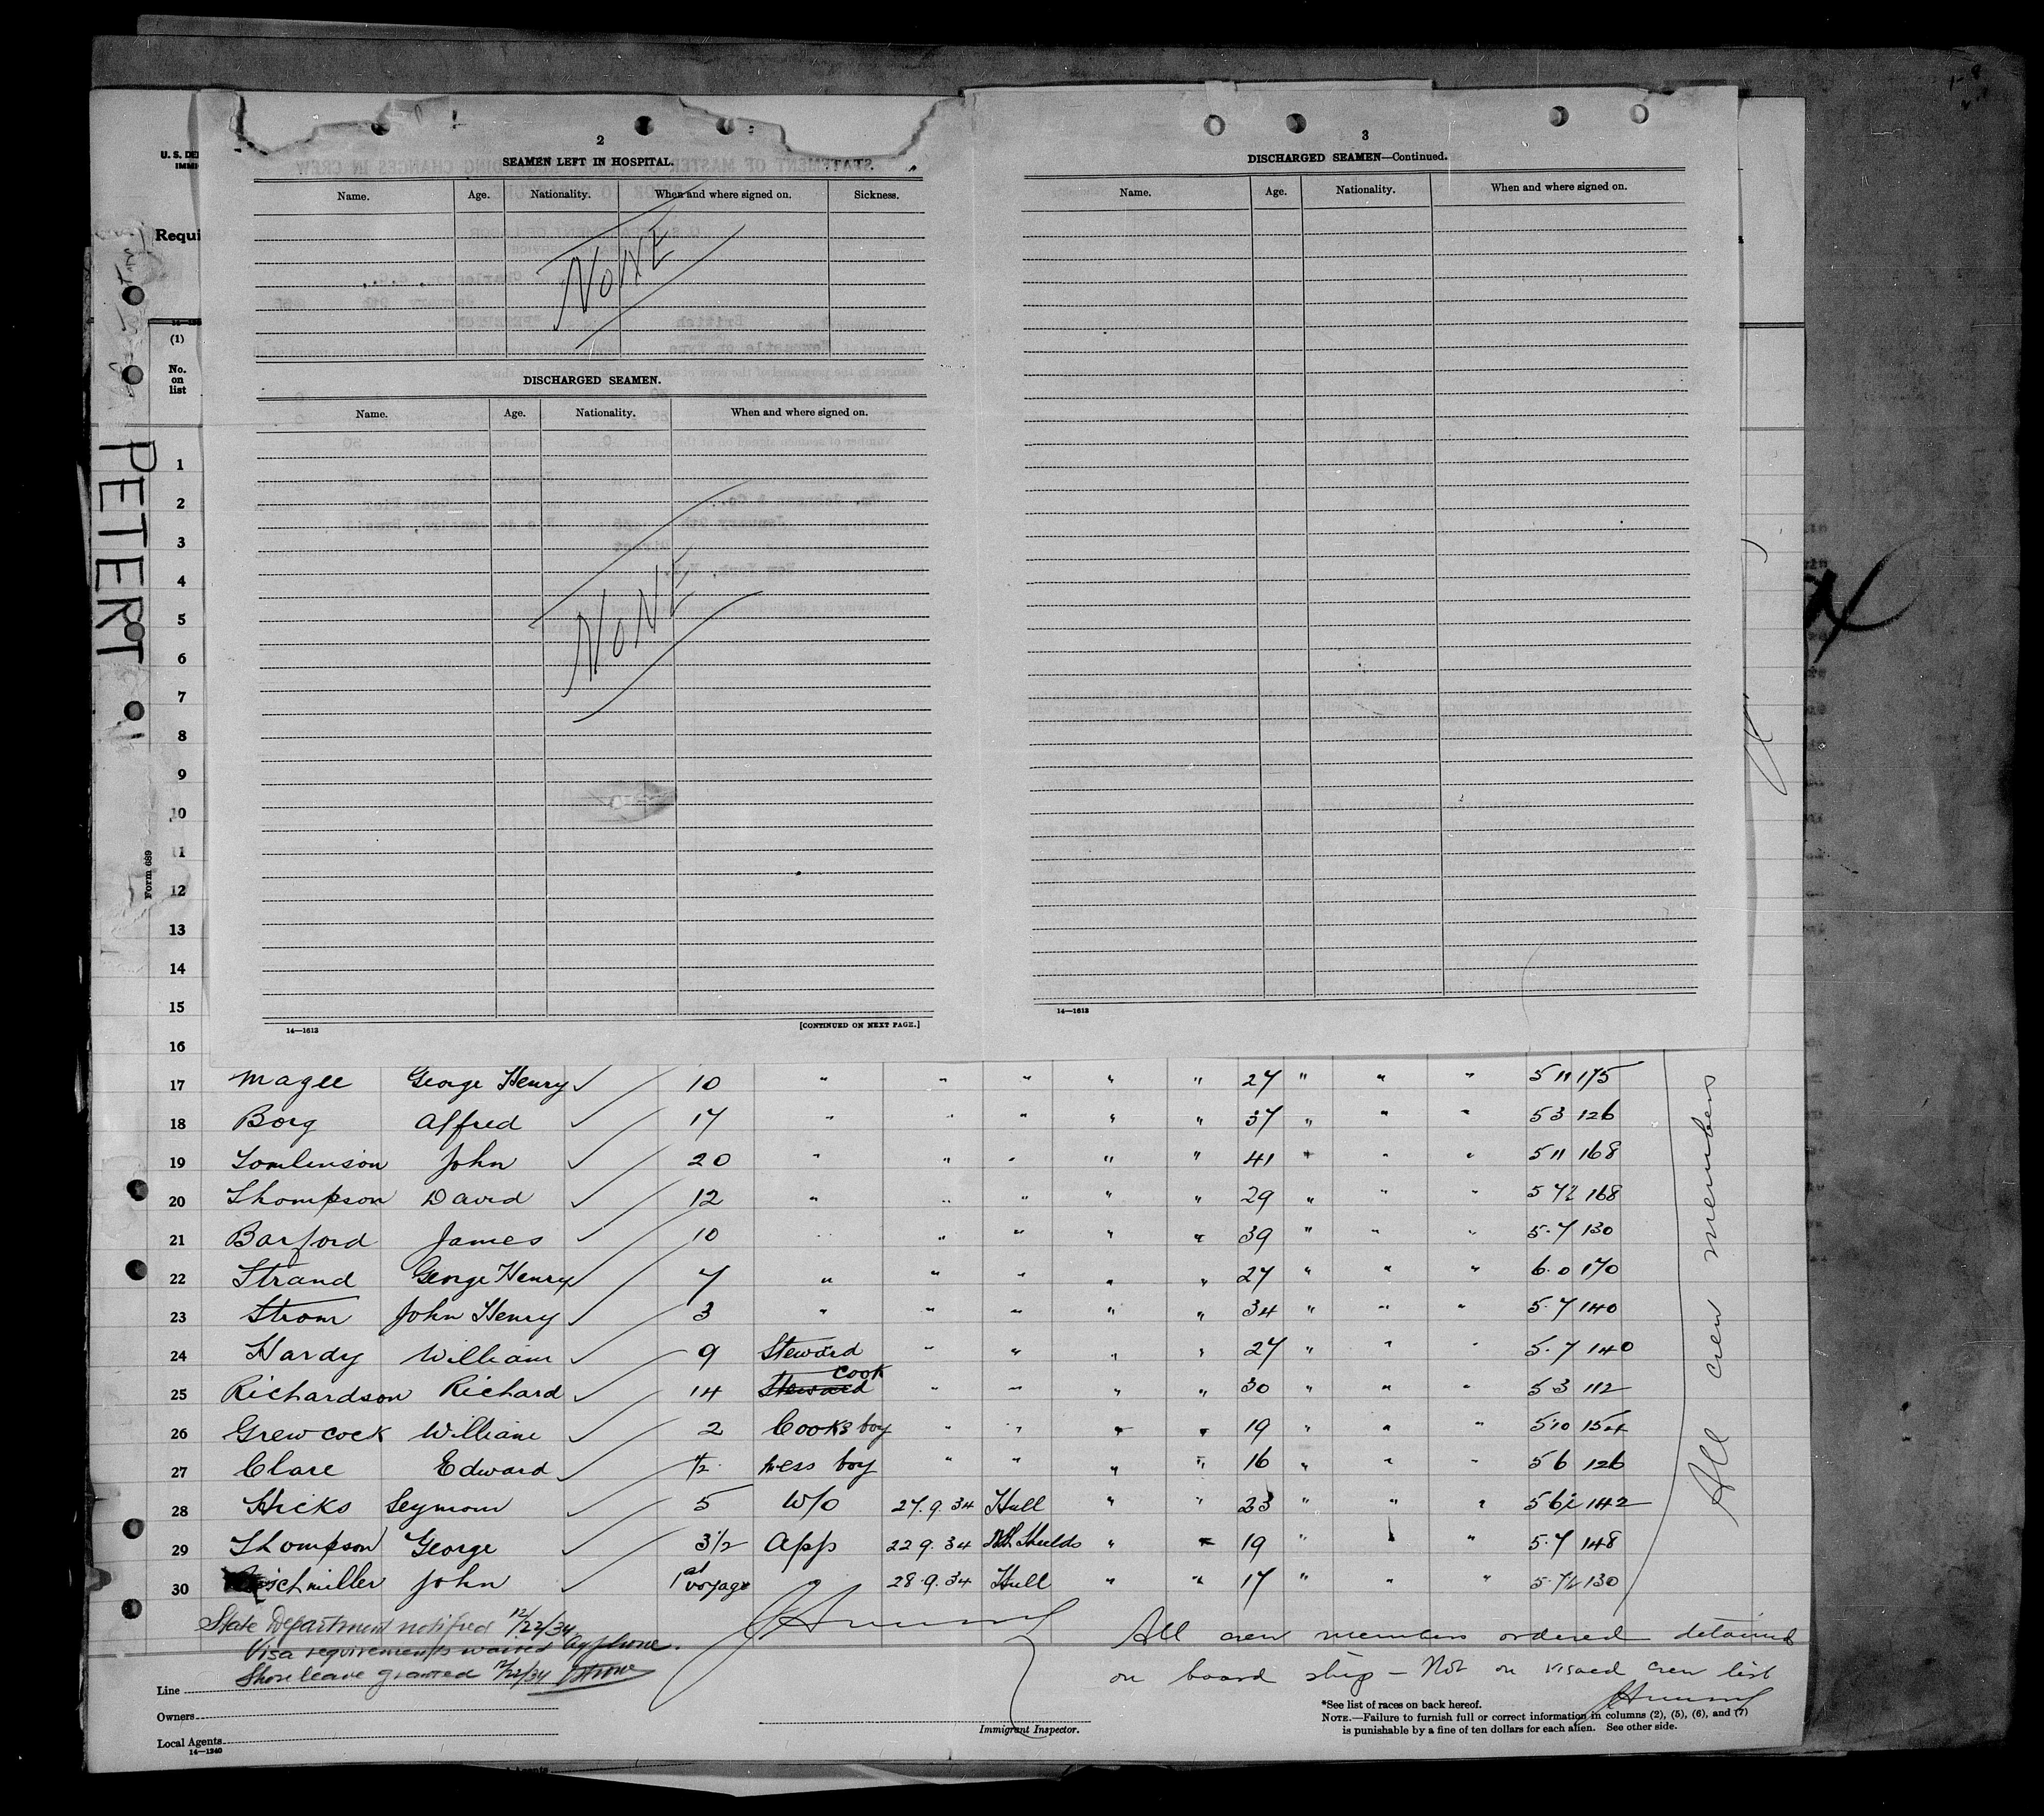 U. S. DE
IMMI
Requi
(1)
No.
on
list
PETERT
Form 689
2
SEAMEN LEFT IN HOSPITAL.
Name. Age. Nationality. When and where signed on. Sickness.
NONE
DISCHARGED SEAMEN.
Name. Age. Nationality. When and where signed on.
NONE
14—1613 [CONTINUED ON NEXT PAGE.]
3
DISCHARGED SEAMEN—Continued.
Name. Age. Nationality. When and where signed on.
14—1613
1
2
3
4
5
6
7
8
9
10
11
12
13
14
15
16
17 Magee George Henry ✓ 10 " " " " " 27 " " " 5 11 175
18 Borg Alfred ✓ 17 " " " " " 37 " " " 5 3 126
19 Tomlinson John ✓ 20 " " " " " 41 " " " 5 11 168
20 Thompson David ✓ 12 " " " " " 29 " " " 5 7½ 168
21 Barford James ✓ 10 " " " " " 39 " " " 5.7 130
22 Strand George Henry ✓ 7 " " " " " 27 " " " 6.0 170
23 Strom John Henry ✓ 3 " " " " " 34 " " " 5.7 140
24 Hardy William ✓ 9 Steward " " " " 27 " " " 5.7 140
25 Richardson Richard ✓ 14 Steward Cook " " " " 30 " " " 5 3 112
26 Grewcock William ✓ 2 Cooks boy " " " " 19 " " " 5 10 154
27 Clare Edward ✓ ½ Mess boy " " " " 16 " " " 5 6 126
28 Hicks Seymour ✓ 5 W/O 27.9.34 Hull " " 23 " " " 5 6½ 142
29 Thompson George ✓ 3½ App 22 9.34 Nth Shields " " 19 " " " 5.7 148
30 John ✓ 1st voyage " 28.9.34 Hull " " 17 " " " 5.7½ 130
All crew members
State Department notified 12/22/34
Visa requirements waived by phone.
Shore leave granted 12/22/34
All crew members ordered detained
on board ship — Not on visaed crew list
Line
Owners
Local Agents
14—1240
Immigrant Inspector.
*See list of races on back hereof.
NOTE.—Failure to furnish full or correct information in columns (2), (5), (6), and (7)
is punishable by a fine of ten dollars for each alien. See other side.